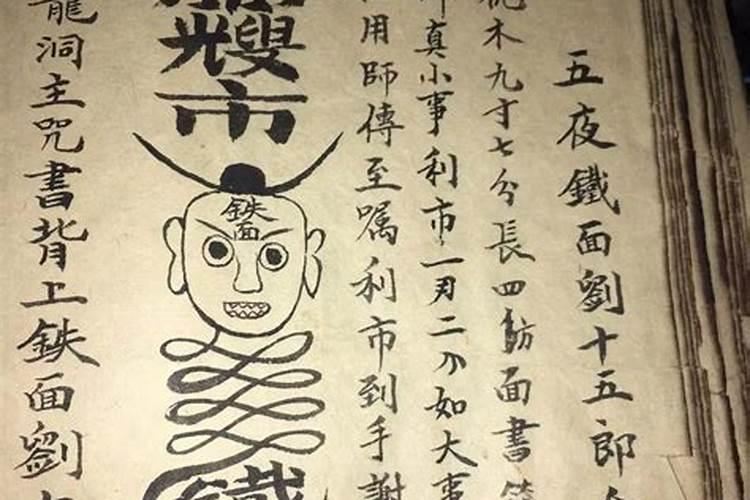 五夜鐵面劉十五郎
桃木九寸七分長四面書符
真小事利市一月二分如大事
用師傳至囑利市到手謝
市
鉄面
鐵
龍洞主咒書背上鉄面劉